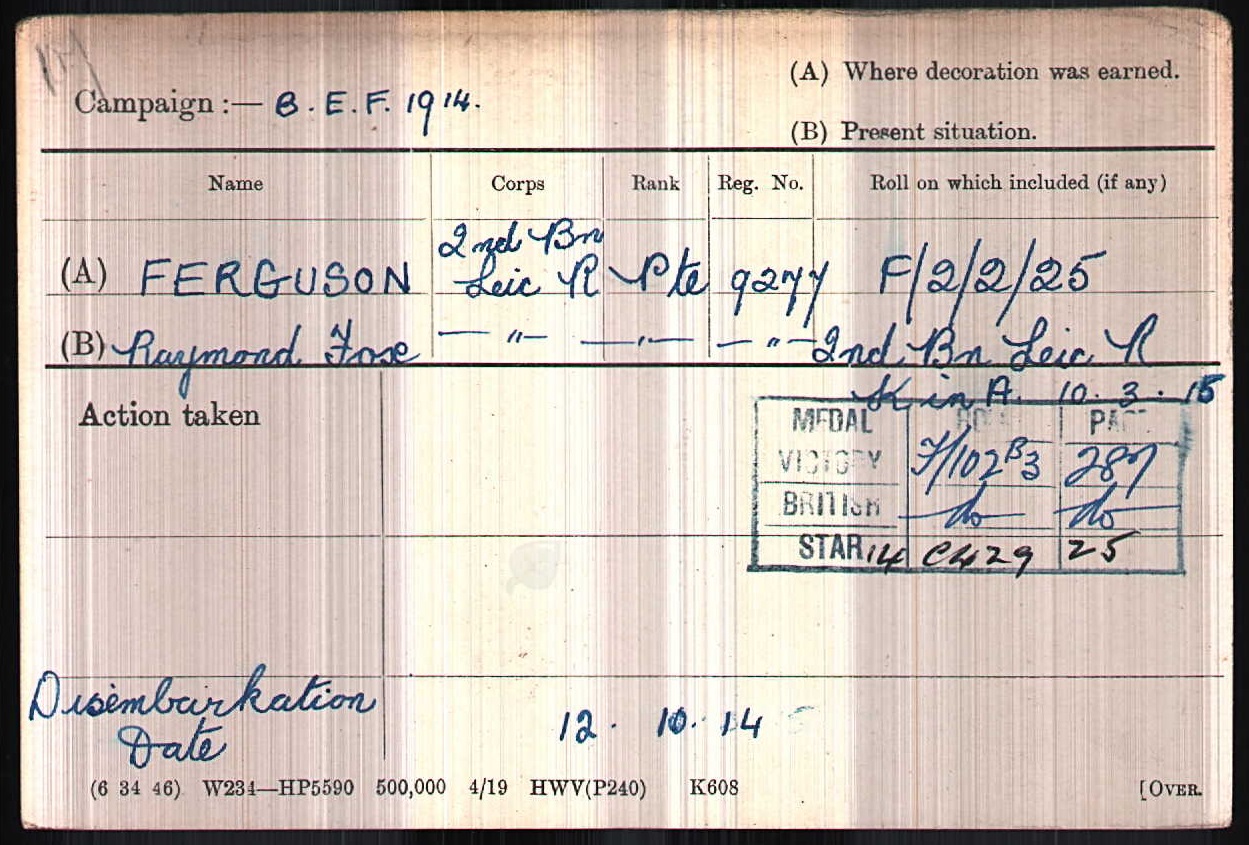 (A) Where decoration was earned.
Campaign :— B.E.F. 1914.
(B) Present situation.
Name Corps Rank Reg. No. Roll on which included (if any)
2nd Bn
(A) FERGUSON Leic R Pte 9277 F/2/2/25
(B) Raymond — " — — " — — " — 2nd Bn Leic R
K in A. 10.3.15
Action taken
MEDAL ROLL PAGE
VICTORY F/102B3 287
BRITISH do do
STAR 14 C429 25
Disembarkation
Date 12. 10. 14
(6 34 46) W234—HP5590 500,000 4/19 HWV(P240) K608 [OVER.